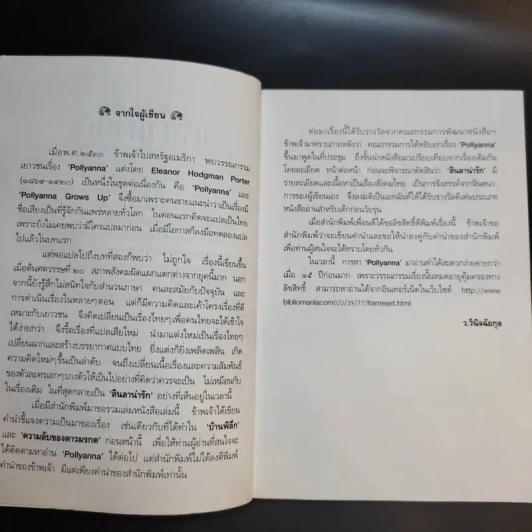 จากใจผู้เขียน
เมื่อพ.ศ.๒๕๓๐ ข้าพเจ้าไปสหรัฐอเมริกา พบวรรณกรรม
เยาวชนเรื่อง 'Pollyanna' แต่งโดย Eleanor Hodgman Porter
(๑๘๖๘-๑๙๒๐) เป็นหนึ่งในชุดต่อเนื่องกัน คือ 'Pollyanna' และ
'Pollyanna Grows Up' จึงซื้อมาเพราะคนขายแนะนำว่าเป็นเรื่องมี
ชื่อเสียงเป็นที่รู้จักกันแพร่หลายทั่วโลก ในตอนแรกคิดจะแปลเป็นไทย
เพราะยังไม่เคยพบว่ามีใครแปลมาก่อน เมื่อมีโอกาสก็ลงมือทดลองแปล
ไปแล้วในบทแรก
แต่พอแปลไปถึงบทที่สองก็พบว่า ไม่ถูกใจ เรื่องนี้เขียนขึ้น
เมื่อต้นศตวรรษที่ ๒๐ สภาพสังคมมีผิดแผกแตกต่างจากยุคนี้มาก นอก
จากนี้ยังรู้สึกไม่สนิทใจกับสำนวนภาษา คนละสมัยกับปัจจุบัน และ
การดำเนินเรื่องในหลายๆตอน แต่ก็มีความคิดและเค้าโครงเรื่องที่ดี
เหมาะกับเยาวชน จึงคิดเปลี่ยนเป็นเรื่องไทยๆเพื่อคนไทยจะได้เข้าใจ
ได้ง่ายกว่า จึงรื้อเรื่องที่แปลเสียใหม่ นำมาแต่งใหม่เป็นเรื่องไทยๆ
เปลี่ยนฉากและสร้างบรรยากาศแบบไทย ยิ่งแต่งก็ยิ่งเพลิดเพลิน เกิด
ความคิดใหม่ๆขึ้นเป็นลำดับ จนถึงเปลี่ยนเนื้อเรื่องและความสัมพันธ์
ของตัวละครเอกๆบางตัวให้เป็นไปอย่างที่คิดว่าควรจะเป็น ไม่เหมือนกับ
ในเรื่องเดิม ในที่สุดกลายเป็น 'ลินลาน่ารัก' อย่างที่เห็นอยู่ในเวลานี้
เมื่อมีสำนักพิมพ์มาขอรวมเล่มหนังสือเล่มนี้ ข้าพเจ้าได้เขียน
คำนำชี้แจงความเป็นมาของเรื่อง เช่นเดียวกับที่ได้ทำใน 'บ้านพิลึก'
และ 'ความลับของดาวมรกต' ก่อนหน้านี้ เพื่อให้ท่านผู้อ่านที่สนใจจะ
ได้ติดตามหาอ่าน 'Pollyanna' ได้ต่อไป แต่สำนักพิมพ์ไม่ได้ลงตีพิมพ์
คำนำของข้าพเจ้า มีแต่เพียงคำนำของสำนักพิมพ์เท่านั้น
ต่อมาเรื่องนี้ได้รับรางวัลจากคณะกรรมการพัฒนาหนังสือฯ
ข้าพเจ้ามาทราบภายหลังว่า คณะกรรมการได้หยิบยกเรื่อง 'Pollyanna'
ขึ้นมาพูดในที่ประชุม ถึงขั้นนำหนังสือมาเปรียบเทียบจากเรื่องเดิมกัน
โดยละเอียด หน้าต่อหน้า ก่อนจะพิจารณาตัดสินว่า 'ลินลาน่ารัก' มี
รายละเอียดและเนื้อหาเป็นเรื่องสังคมไทย เป็นการรังสรรค์จากจินตนา-
การของผู้เขียนเอง จึงลงมติเป็นเอกฉันท์ให้ได้รับรางวัลดีเด่นประเภท
หนังสือสำหรับเด็กก่อนวัยรุ่น
เมื่อสำนักพิมพ์เพื่อนดีได้ขอลิขสิทธิ์ตีพิมพ์เรื่องนี้ ข้าพเจ้าขอ
สำนักพิมพ์ว่าจะเขียนคำนำและขอให้นำลงคู่กับคำนำของสำนักพิมพ์
เพื่อท่านผู้สนใจจะได้ทราบโดยทั่วกัน
ในเวลานี้ การหา 'Pollyanna' มาอ่านทำได้สะดวกง่ายดายกว่า
เมื่อ ๑๕ ปีก่อนมาก เพราะวรรณกรรมเรื่องนั้นหมดอายุคุ้มครองทาง
ลิขสิทธิ์ สามารถหาอ่านได้จากอินเทอร์เน็ตในเว็บไซต์ http://www.
bibliomania.com/0/0/39/77/frameset.html
ว.วินิจฉัยกุล